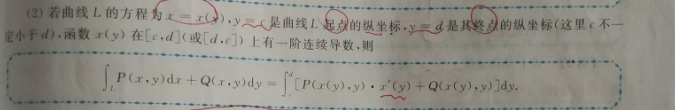 (2) 若曲线 L 的方程为 x = x(y), y = c 是曲线 L 起点的纵坐标, y = d 是其终点的纵坐标(这里 c 不一
定小于 d), 函数 x(y) 在[c,d](或[d,c])上有一阶连续导数, 则
∫_L P(x,y)dx + Q(x,y)dy = ∫_c^d [P(x(y),y)·x′(y) + Q(x(y),y)]dy.